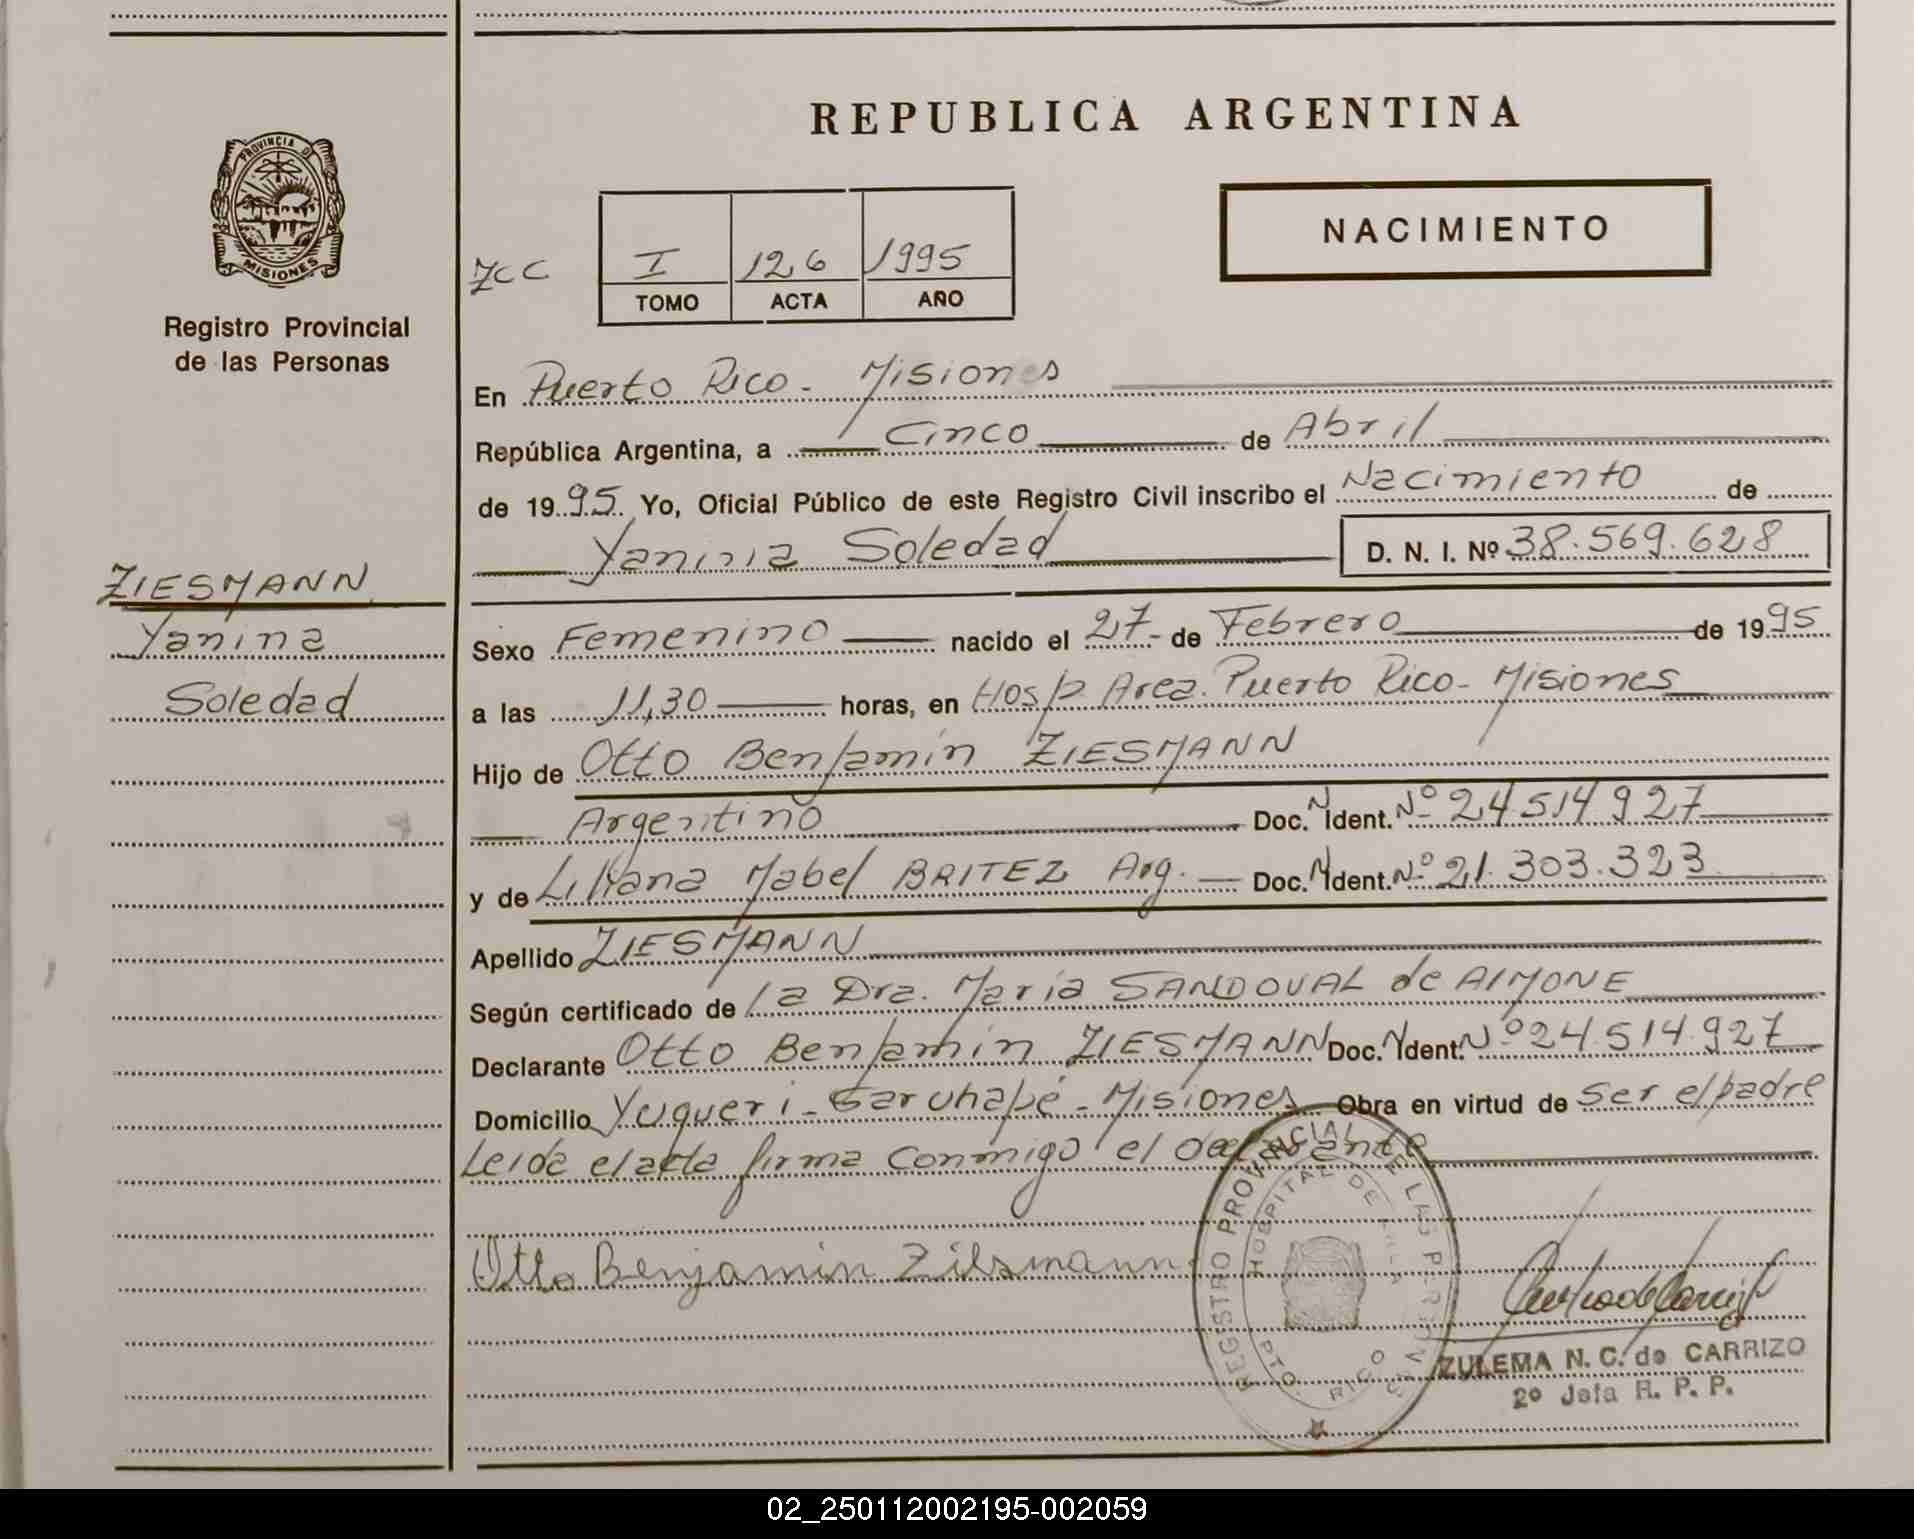 REPUBLICA ARGENTINA
PROVINCIA DE
MISIONES
Registro Provincial
de las Personas
NACIMIENTO
ZCC I 126 1995
TOMO ACTA AÑO
En Puerto Rico - Misiones
República Argentina, a Cinco de Abril
de 1995 Yo, Oficial Público de este Registro Civil inscribo el Nacimiento de
Yanina Soledad D. N. I. Nº 38.569.628
ZIESMANN
Yanina
Soledad
Sexo Femenino nacido el 27 de Febrero de 1995
a las 11,30 horas, en Hosp. Area. Puerto Rico - Misiones
Hijo de Otto Benjamin ZIESMANN
Argentino Doc. Ident. Nº 24514927
y de Liliana Mabel BRITEZ Arg. Doc. Ident. Nº 21.303.323
Apellido ZIESMANN
Según certificado de la Dra. Maria SANDOVAL de AIMONE
Declarante Otto Benjamin ZIESMANN Doc. Ident. Nº 24.514.927
Domicilio Yuqueri - Garuhapé - Misiones Obra en virtud de ser el padre
Leida el acta firma conmigo el declarante
Otto Benjamin Ziesmann
REGISTRO PROVINCIAL DE LAS PERSONAS
HOSPITAL DE
PTO. RICO
ZULEMA N. C. de CARRIZO
2º Jefa R. P. P.
02_250112002195-002059